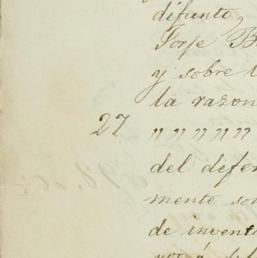 difunto,
Jorge B
y sobre l
la razon
27 " " " " "
del defen
mente so
de invent